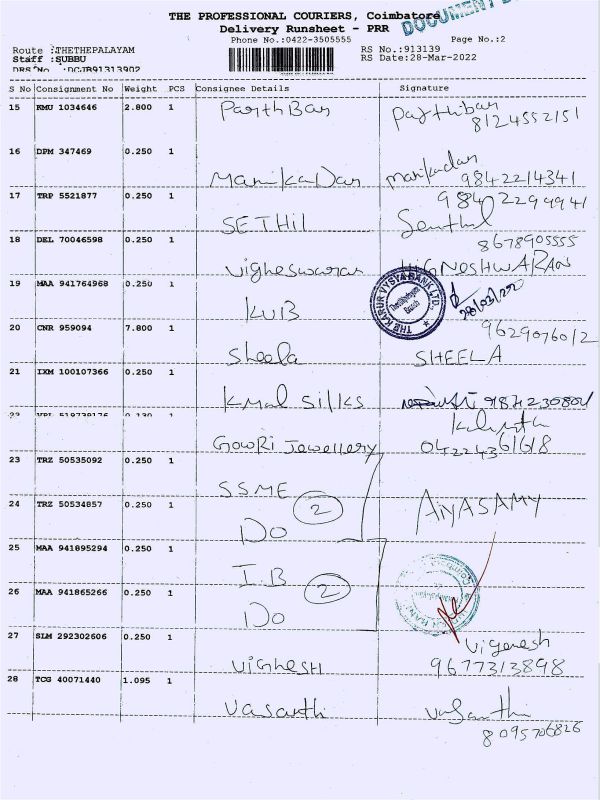 THE PROFESSIONAL COURIERS, Coimbatore
DOCUMENT
Delivery Runsheet - PRR
Phone No.:0422-3505555 Page No.:2
Route :THETHEPALAYAM RS No.:913139
Staff :SUBBU RS Date:28-Mar-2022
DRS No :DCJB91313902
S No Consignment No Weight PCS Consignee Details Signature
15 KMU 1034646 2.800 1 Parthban Parthiban
8124552151
16 DPM 347469 0.250 1
Manikadan manikadan 9842214341
17 TRP 5521877 0.250 1 9842299941
SETHIL Senthil
18 DEL 70046598 0.250 1 8678905555
Vigheswaran VIGNESHWARAN
19 MAA 941764968 0.250 1 THE KARUR VYSYA BANK LTD. Branch
KVB 28/03/22
20 CNR 959094 7.800 1 9629076012
Sheela SHEELA
21 IXM 100107366 0.250 1
Kmal silks
22 VPL 519739176 0.130 1
Gowri Jewellery 04224361618
23 TRZ 50535092 0.250 1
SSME
24 TRZ 50534857 0.250 1 2 AIYASAMY
Do
25 MAA 941895294 0.250 1
I.B
26 MAA 941865266 0.250 1 2
Do
27 SLM 292302606 0.250 1 Vigenesh
VIGHNESH 9677313898
28 TCG 40071440 1.095 1
Vasanth Vasanthi
8095706826